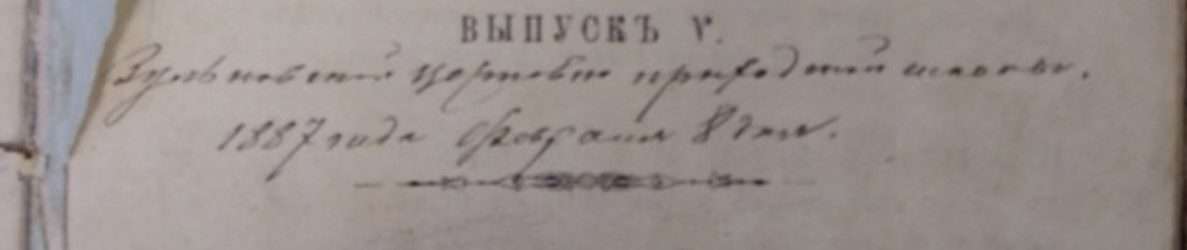 ВЫПУСКЪ V.
церковно приходской школы.
1887 года Февраля 8 дня.